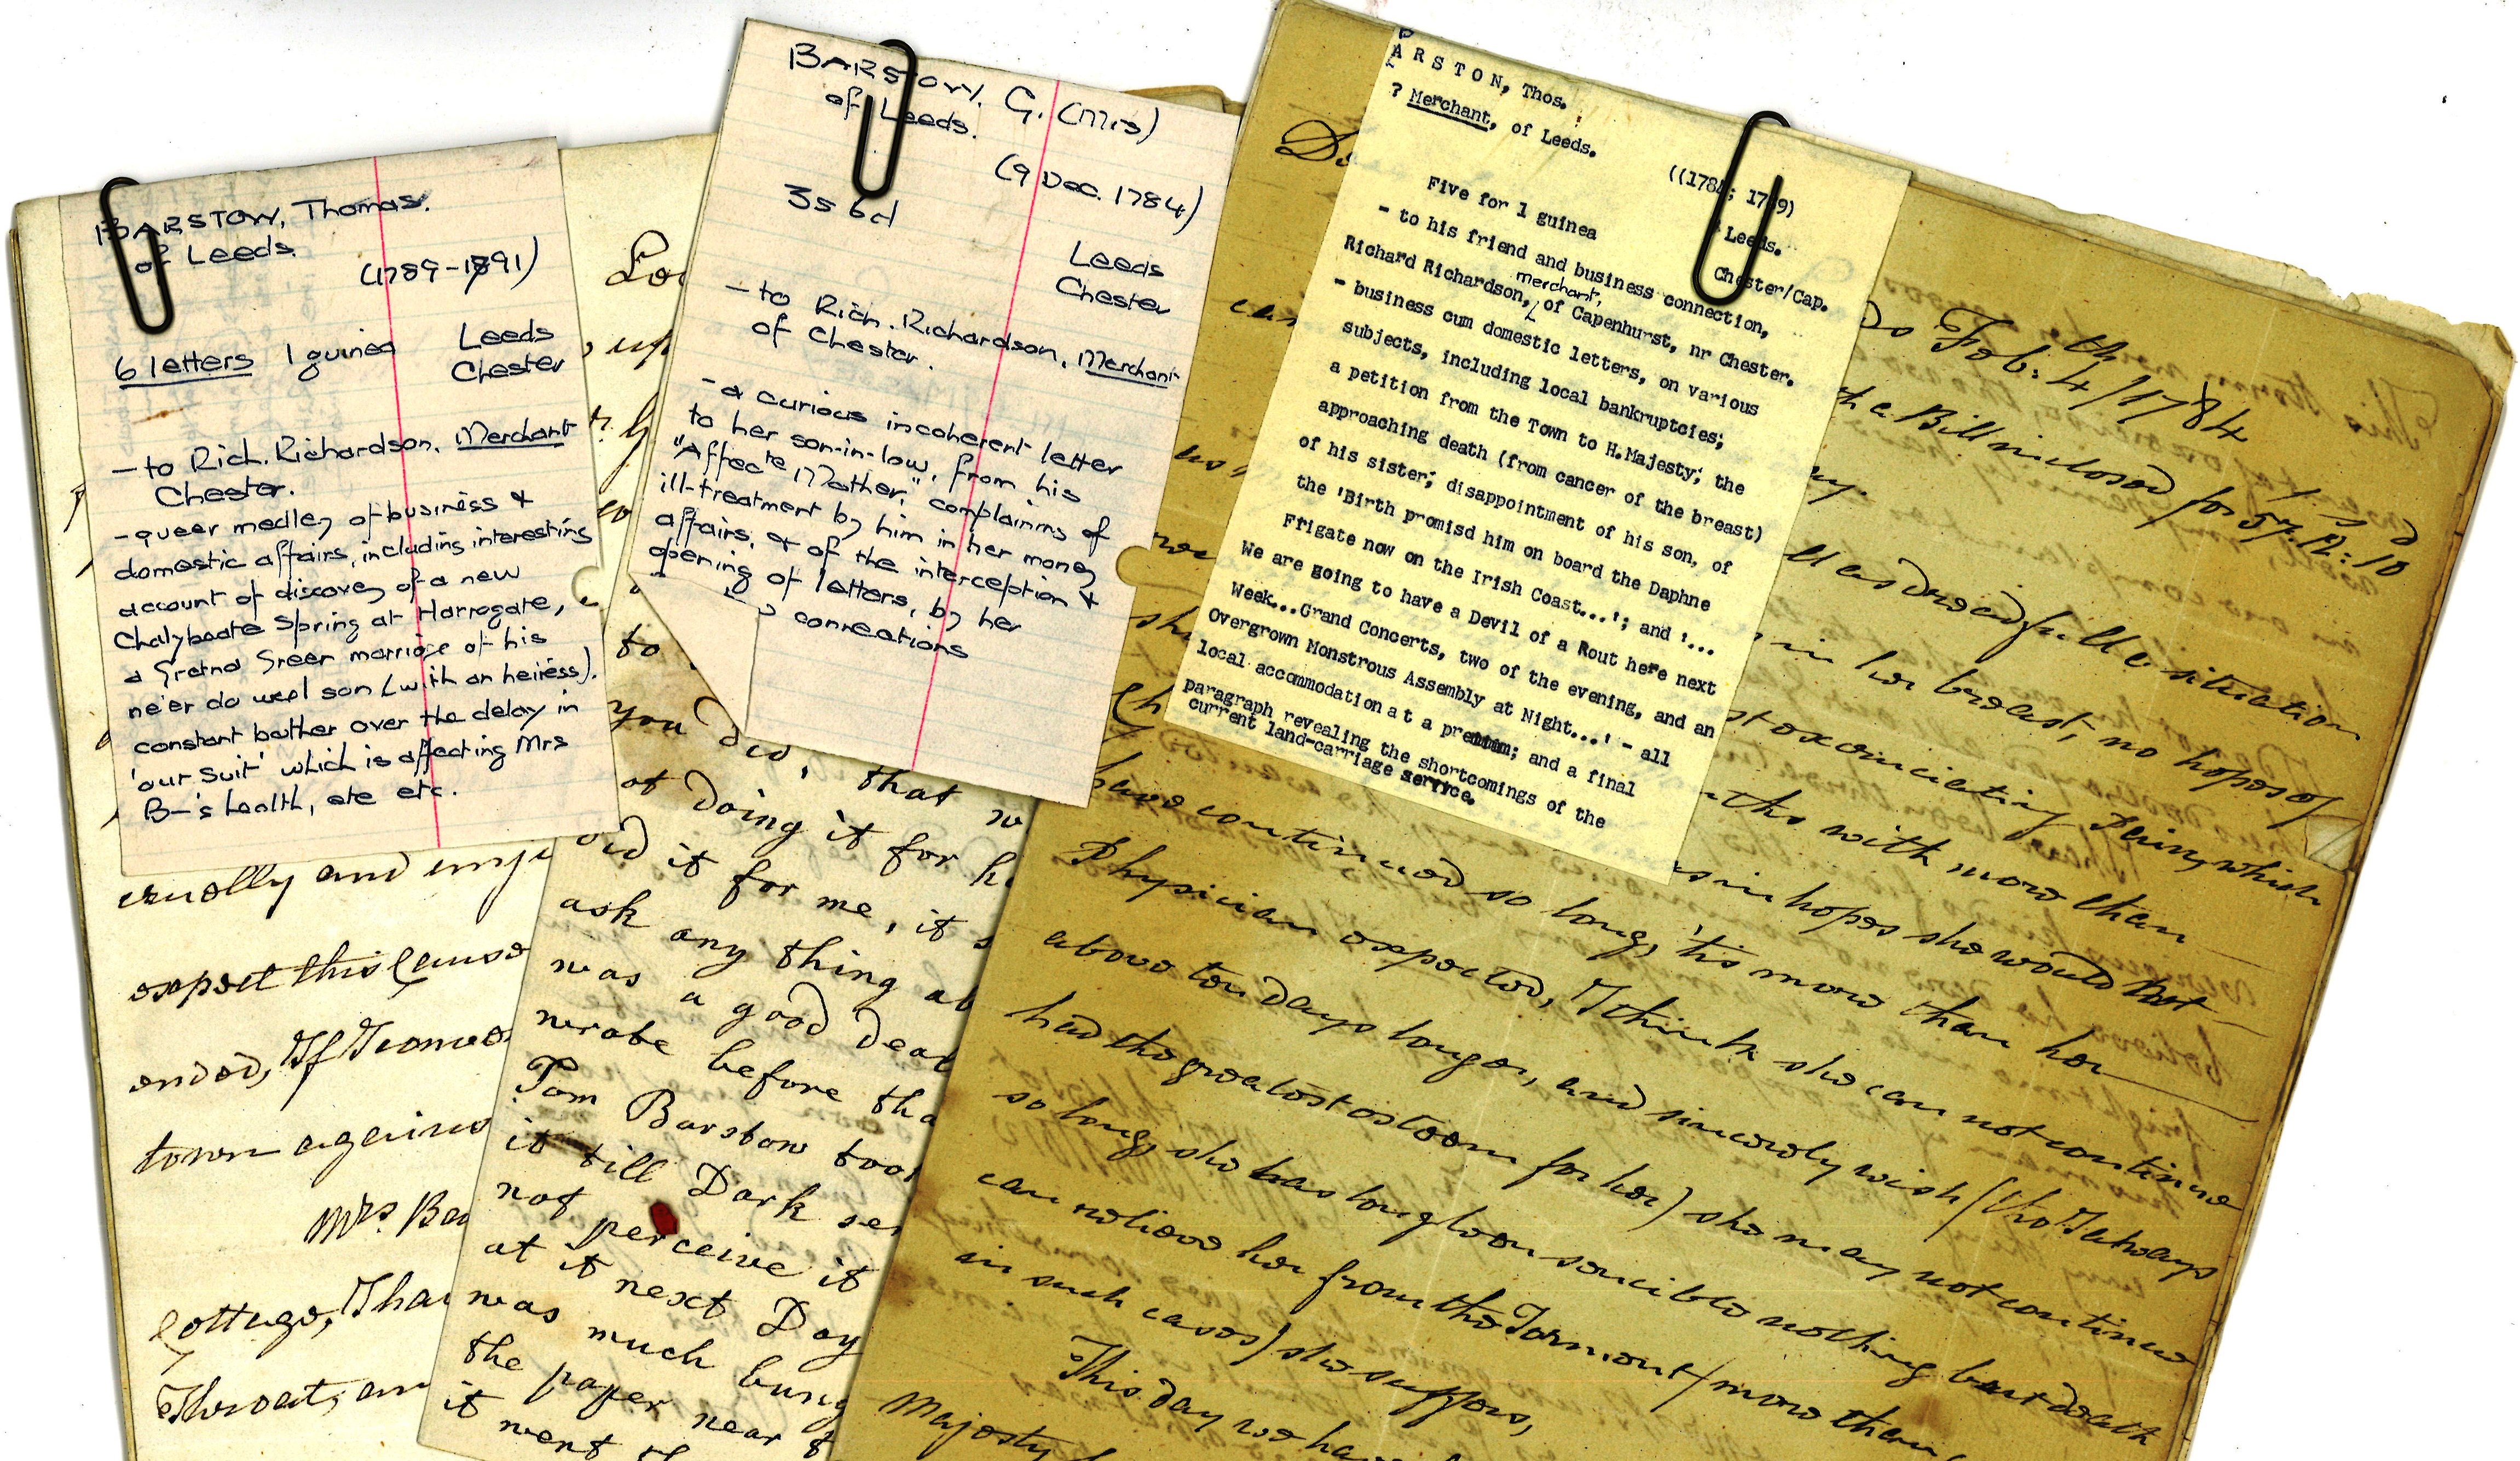 BARSTOW, Thomas.
of Leeds.
(1789-1891)
6 letters 1 guinea Leeds
Chester
- to Rich. Richardson, Merchant
Chester.
- queer medley of business &
domestic affairs, including interesting
account of discovery of a new
Chalybeate Spring at Harrogate,
a Gretna Green marriage of his
ne'er do weel son (with an heiress).
constant bother over the delay in
'our suit' which is affecting Mrs
B-'s health, etc etc.
cruelly and
expect this Cause
ended, If I
town
Mrs. Bar
Cottage,
Throat, an
BARSTOW, G. (Mrs)
of Leeds.
(9 Dec. 1784)
3s 6d
Leeds
Chester
- to Rich. Richardson, Merchant
of Chester.
- a curious incoherent letter
to her son-in-law, from his
"Affecte Mother," complaining of
ill-treatment by him in her money
affairs, & of the interception &
opening of letters, by her
conneations
to
you did, that w
of doing it for h
did it for me, it s
ask any thing ab
was a good deal
wrote before tha
Tom Barstow took
it till Dark se
not perceive it
at it next Day
was much bung
the paper near t
it went th
P
ARSTON, Thos.
? Merchant, of Leeds.
((1784; 1789)
Five for 1 guinea Leeds.
Chester/Cap.
- to his friend and business connection,
merchant,
Richard Richardson, of Capenhurst, nr Chester.
- business cum domestic letters, on various
subjects, including local bankruptcies;
a petition from the Town to H.Majesty; the
approaching death (from cancer of the breast)
of his sister; disappointment of his son, of
the 'Birth promisd him on board the Daphne
Frigate now on the Irish Coast...'; and '...
We are going to have a Devil of a Rout here next
Week...Grand Concerts, two of the evening, and an
Overgrown Monstrous Assembly at Night...' - all
local accommodation at a premium; and a final
paragraph revealing the shortcomings of the
current land-carriage service.
Feb: 4th/1784
a Bill inclosed for 57.12:10
as dreadfull a situation
in her breast, no hopes of
most excruciating Pain, which
with more then
in hopes she would not
have continued so long, 'tis more than her
Physician expected, I think she can not continue
above ten days longer, and sincerely wish (tho I always
had the greatest esteem for her) she may not continue
so long, she has long been sencible nothing but death
can relieve her from the Torment (more then
in such cases) she suffers,
This day we have
Majesty